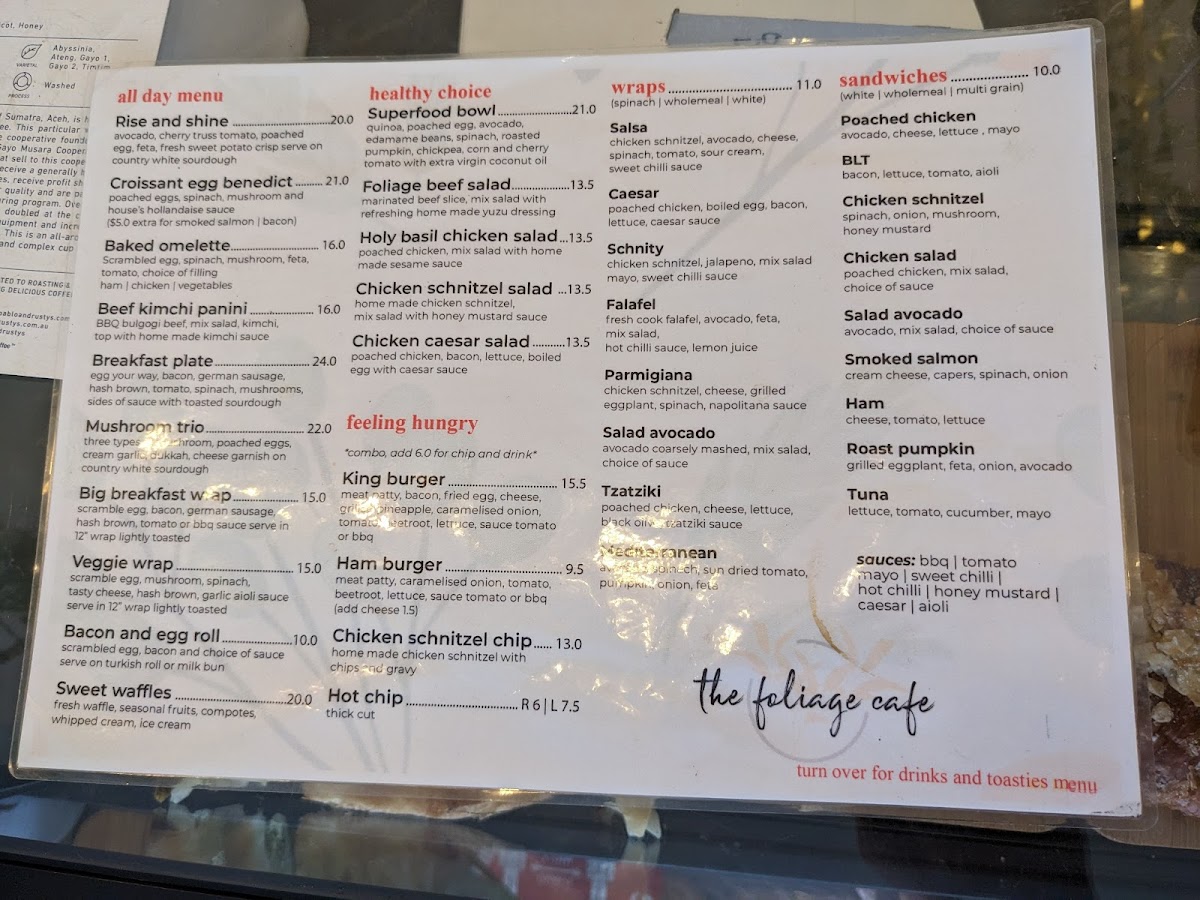 cot, Honey
VARIETAL
Abyssinia,
Ateng, Gayo 1,
Gayo 2, Timtim
PROCESS
Washed
Sumatra, Aceh, is
ee. This particular
cooperative
Gayo Musara
at sell to this
receive a generally
es, receive profit
quality and are
program. Ove
doubled at the
and
This is an
and complex cup
TED TO ROASTING &
G DELICIOUS COFFE
pabloandrustys.com
rustys.com.au
drustys
all day menu
Rise and shine ............................20.0
avocado, cherry truss tomato, poached
egg, feta, fresh sweet potato crisp serve on
country white sourdough
Croissant egg benedict ........ 21.0
poached eggs, spinach, mushroom and
house's hollandaise sauce
($5.0 extra for smoked salmon | bacon)
Baked omelette......................... 16.0
Scrambled egg, spinach, mushroom, feta,
tomato, choice of filling
ham | chicken | vegetables
Beef kimchi panini .................... 16.0
BBQ bulgogi beef, mix salad, kimchi,
top with home made kimchi sauce
Breakfast plate ............................ 24.0
egg your way, bacon, german sausage,
hash brown, tomato, spinach, mushrooms,
sides of sauce with toasted sourdough
Mushroom trio............................. 22.0
three types mushroom, poached eggs,
cream garlic, dukkah, cheese garnish on
country white sourdough
Big breakfast wrap.................... 15.0
scramble egg, bacon, german sausage,
hash brown, tomato or bbq sauce serve in
12" wrap lightly toasted
Veggie wrap ................................. 15.0
scramble egg, mushroom, spinach,
tasty cheese, hash brown, garlic aioli sauce
serve in 12" wrap lightly toasted
Bacon and egg roll ....................10.0
scrambled egg, bacon and choice of sauce
serve on turkish roll or milk bun
Sweet waffles ...............................20.0
fresh waffle, seasonal fruits, compotes,
whipped cream, ice cream
healthy choice
Superfood bowl ............................21.0
quinoa, poached egg, avocado,
edamame beans, spinach, roasted
pumpkin, chickpea, corn and cherry
tomato with extra virgin coconut oil
Foliage beef salad.......................13.5
marinated beef slice, mix salad with
refreshing home made yuzu dressing
Holy basil chicken salad...13.5
poached chicken, mix salad with home
made sesame sauce
Chicken schnitzel salad ...13.5
home made chicken schnitzel,
mix salad with honey mustard sauce
Chicken caesar salad ..........13.5
poached chicken, bacon, lettuce, boiled
egg with caesar sauce
feeling hungry
*combo, add 6.0 for chip and drink*
King burger ............................... 15.5
meat patty, bacon, fried egg, cheese,
grilled pineapple, caramelised onion,
tomato, beetroot, lettuce, sauce tomato
or bbq
Ham burger ................................. 9.5
meat patty, caramelised onion, tomato,
beetroot, lettuce, sauce tomato or bbq
(add cheese 1.5)
Chicken schnitzel chip...... 13.0
home made chicken schnitzel with
chips and gravy
Hot chip ............................... R 6 | L 7.5
thick cut
wraps................................... 11.0
(spinach | wholemeal | white)
Salsa
chicken schnitzel, avocado, cheese,
spinach, tomato, sour cream,
sweet chilli sauce
Caesar
poached chicken, boiled egg, bacon,
lettuce, caesar sauce
Schnity
chicken schnitzel, jalapeno, mix salad
mayo, sweet chilli sauce
Falafel
fresh cook falafel, avocado, feta,
mix salad,
hot chilli sauce, lemon juice
Parmigiana
chicken schnitzel, cheese, grilled
eggplant, spinach, napolitana sauce
Salad avocado
avocado coarsely mashed, mix salad,
choice of sauce
Tzatziki
poached chicken, cheese, lettuce,
black olive, tzatziki sauce
Mediterranean
avocado, spinach, sun dried tomato,
pumpkin, onion, feta
sandwiches ...................... 10.0
(white | wholemeal | multi grain)
Poached chicken
avocado, cheese, lettuce , mayo
BLT
bacon, lettuce, tomato, aioli
Chicken schnitzel
spinach, onion, mushroom,
honey mustard
Chicken salad
poached chicken, mix salad,
choice of sauce
Salad avocado
avocado, mix salad, choice of sauce
Smoked salmon
cream cheese, capers, spinach, onion
Ham
cheese, tomato, lettuce
Roast pumpkin
grilled eggplant, feta, onion, avocado
Tuna
lettuce, tomato, cucumber, mayo
sauces: bbq | tomato
mayo | sweet chilli |
hot chilli | honey mustard |
caesar | aioli
the foliage cafe
turn over for drinks and toasties menu